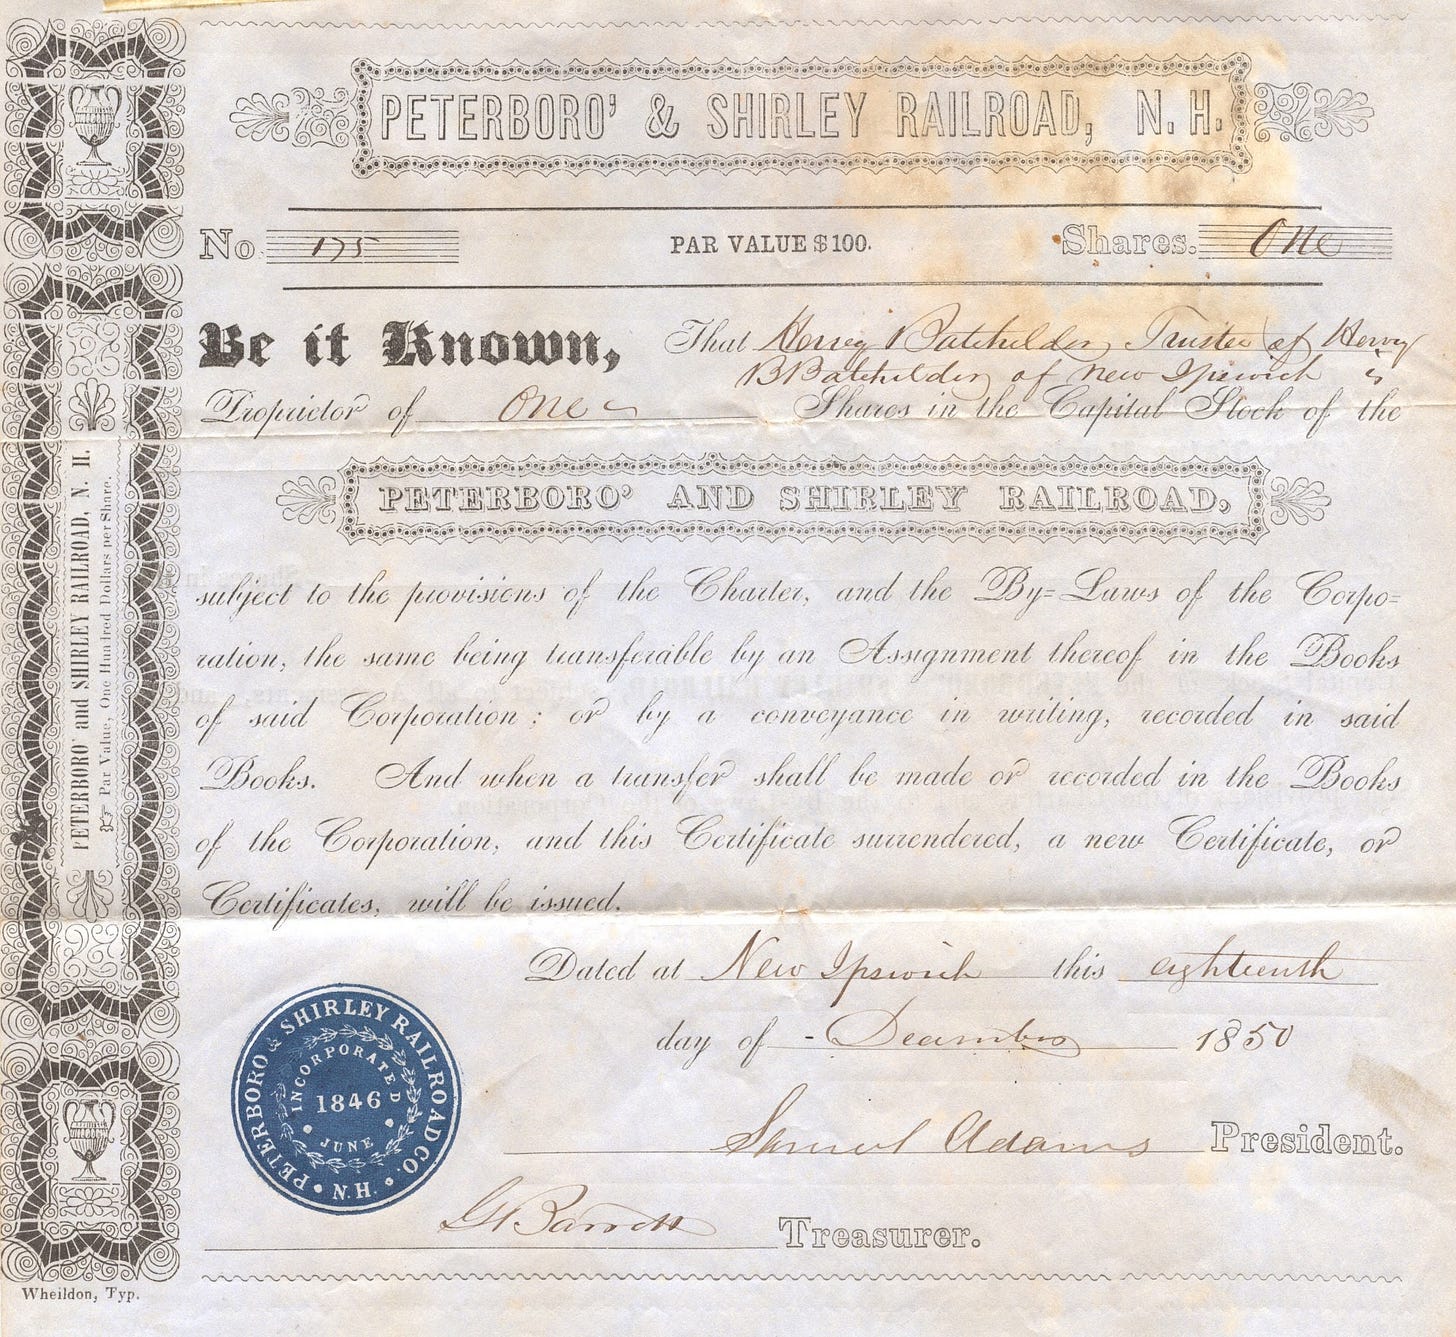 PETERBORO' & SHIRLEY RAILROAD, N. H.
No. 175 PAR VALUE $100. Shares. One
Be it Known, That Hervey Batchelder, Trustee of Hervey
B Batchelder of New Ipswich is
Proprietor of One Shares in the Capital Stock of the
PETERBORO' AND SHIRLEY RAILROAD,
subject to the provisions of the Charter, and the By=Laws of the Corpo=
ration, the same being transferable by an Assignment thereof in the Books
of said Corporation; or by a conveyance in writing, recorded in said
Books. And when a transfer shall be made or recorded in the Books
of the Corporation, and this Certificate surrendered, a new Certificate, or
Certificates, will be issued.
Dated at New Ipswich this eighteenth
day of - December 1850
Samuel Adams President.
Barrett Treasurer.
PETERBORO & SHIRLEY RAILROAD CO. N.H.
INCORPORATED
1846
JUNE
PETERBORO' and SHIRLEY RAILROAD, N. H.
Par Value, One Hundred Dollars per Share.
Wheildon, Typ.